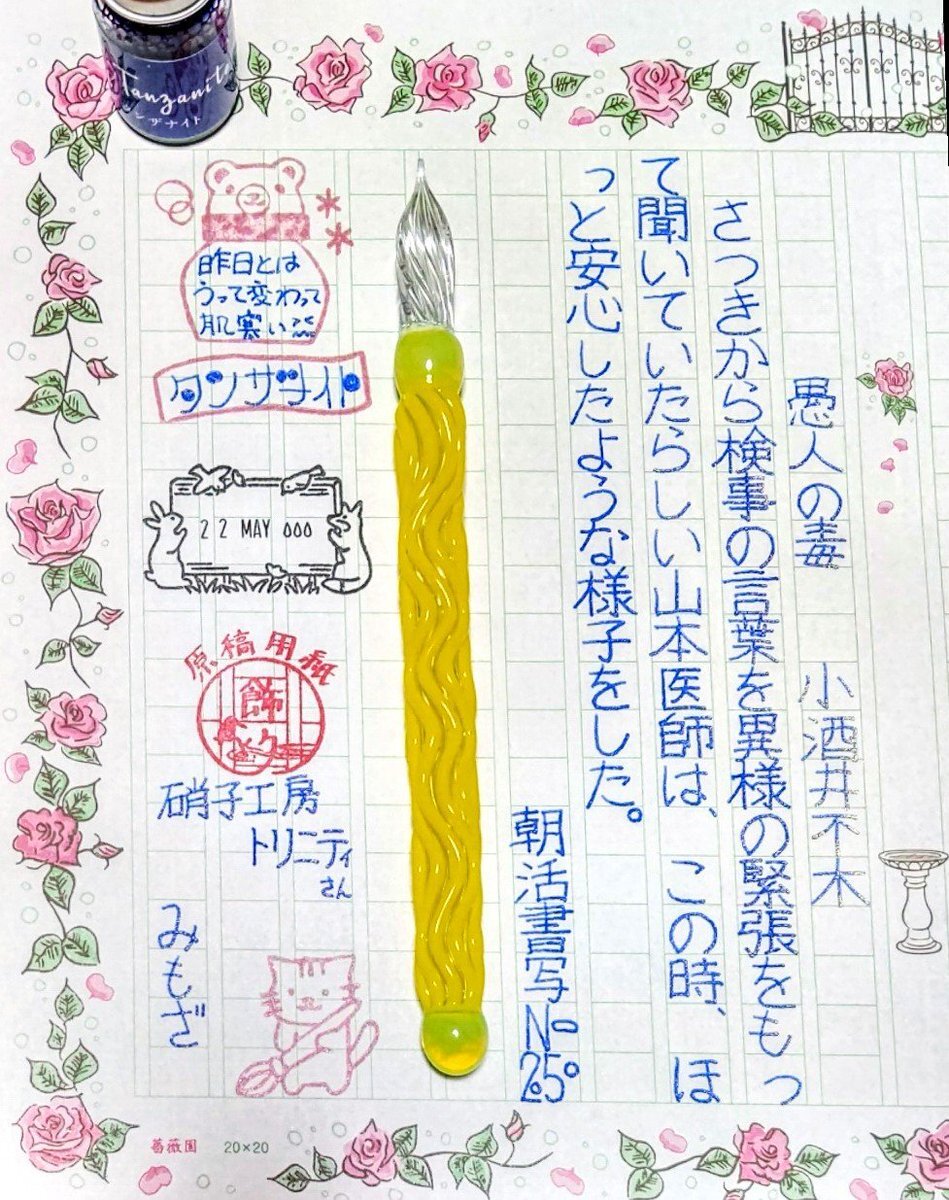 愚人の毒　小酒井不木
さつきから検事の言葉を異様の緊張をもっ
て聞いていたらしい山本医師は、この時、ほ
っと安心したような様子をした。
朝活書写No.25
Tanzanite
ンザナイト
昨日とは
うって変わって
肌寒い
タンザナイト
22 MAY 000
原稿用紙
飾
硝子工房
トリニティ
さん
みもざ
薔薇園 20×20